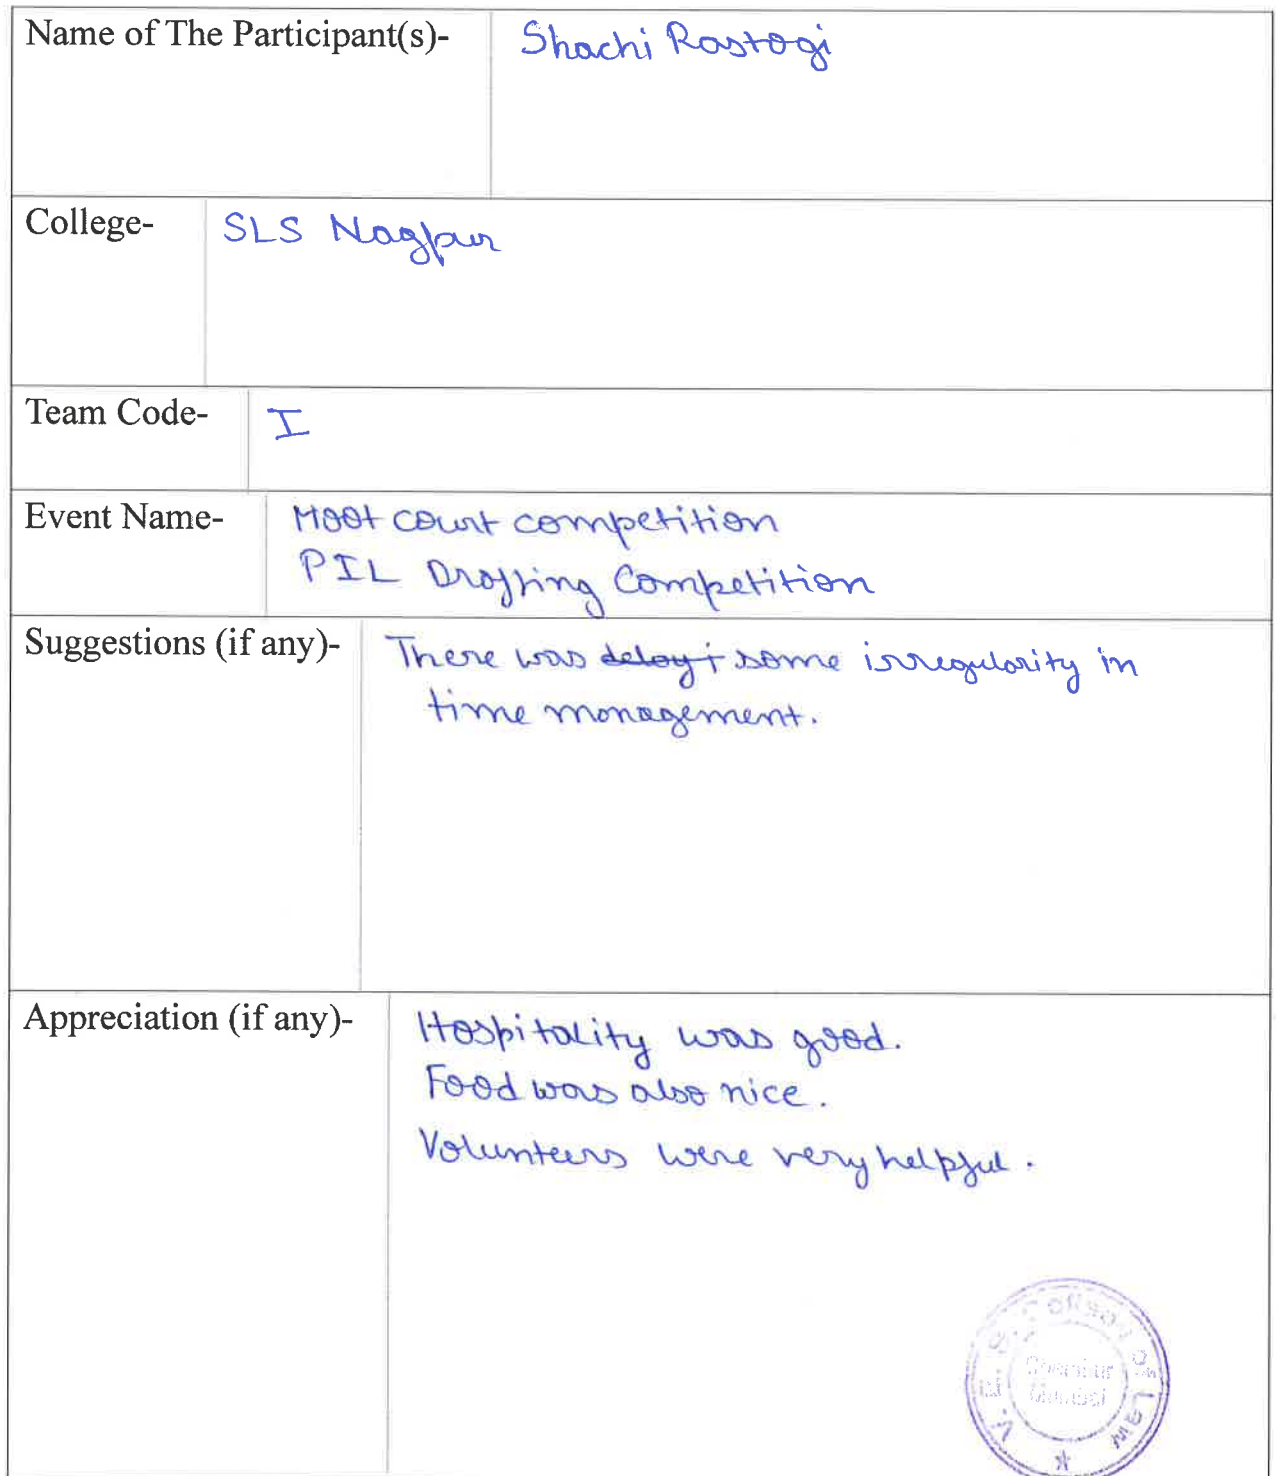 Name of The Participant(s)- Shachi Rastogi
College- SLS Nagpur
Team Code- I
Event Name- Moot court competition
PIL Drafting Competition
Suggestions (if any)- There was delay i some irregularity in
time management.
Appreciation (if any)- Hospitality was good.
Food was also nice.
Volunteers were very helpful.
V. E. S. College of Law
Chembur
Mumbai